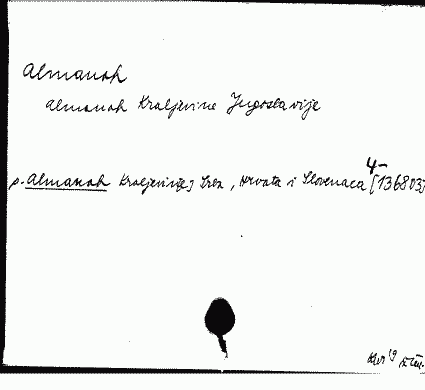 Almanah
Almanah Kraljevine Jugoslavije
4-
p. Almanah Kraljevine Srba, Hrvata i Slovenaca [136803]